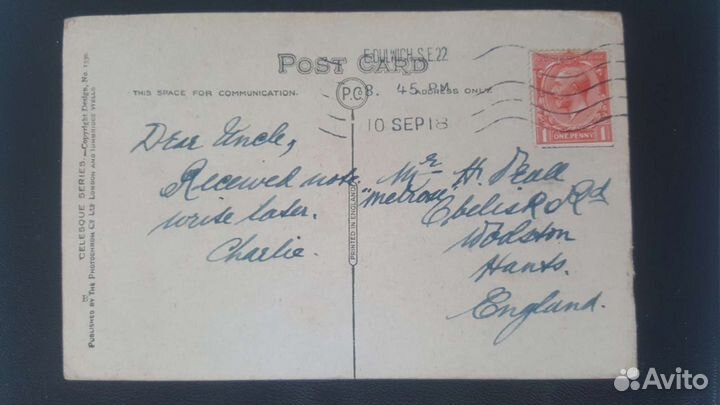 E.DULWICH.S.E.22
POST CARD
P.C.
8. 45 PM
THIS SPACE FOR COMMUNICATION.
ADDRESS ONLY.
10 SEP 18
ONE PENNY
1 1
Dear Uncle,
Received note
write later.
Charlie.
Mr H. Peall
"Melrose"
Obelisk Rd
Wolston
Hants.
England.
PRINTED IN ENGLAND
CELESQUE SERIES.—Copyright Design, No.
PUBLISHED BY THE PHOTOCHROM CO LTD LONDON AND TUNBRIDGE WELLS
Avito